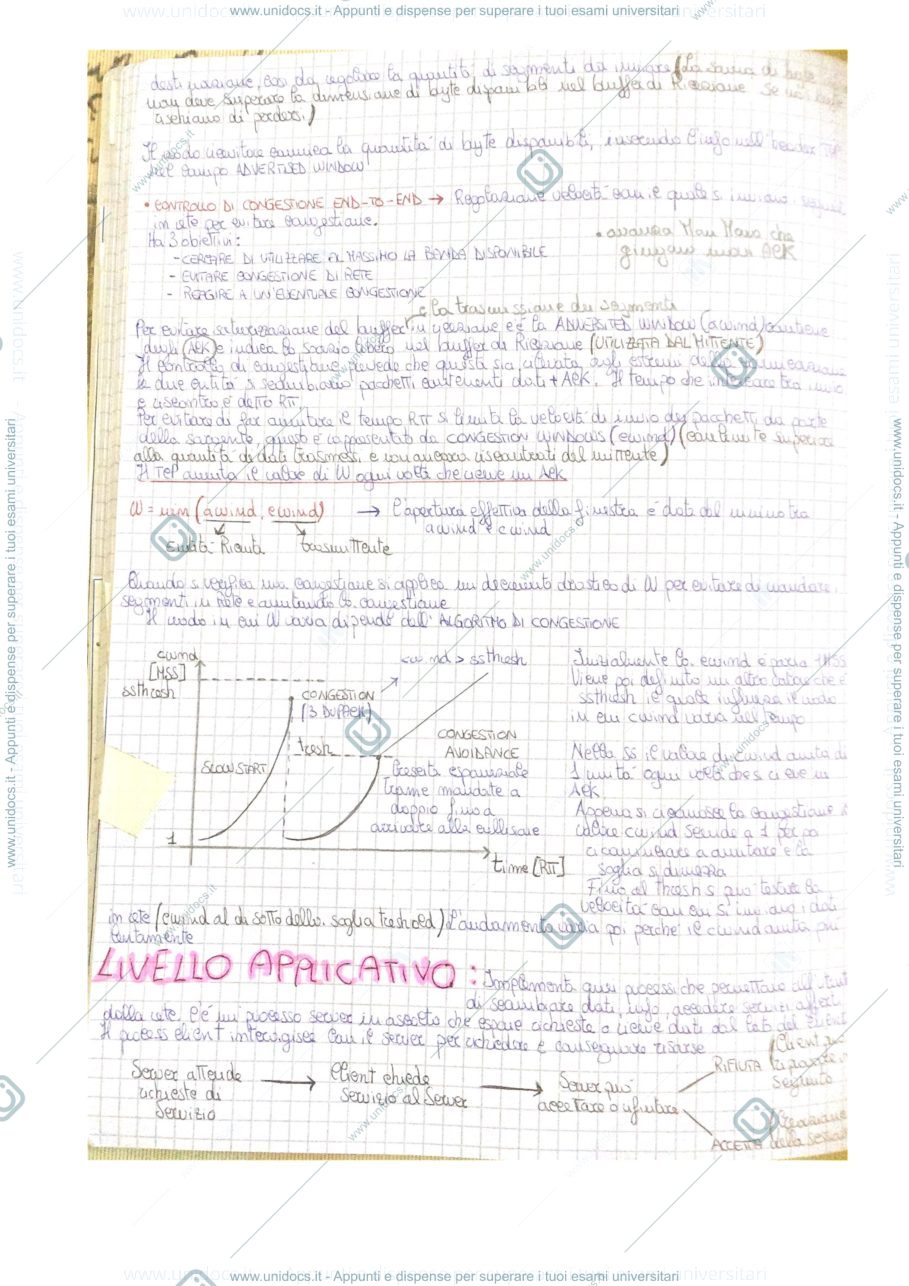 www.unidocs.it - Appunti e dispense per superare i tuoi esami universitari
destinazione, così da regolare la quantità di segmenti da inviare (La somma di byte
non deve superare la dimensione di byte disponibili nel buffer di Ricezione se no i byte
rischiano di perdersi)
Il nodo ricevitore comunica la quantità di byte disponibili, inserendo l'info nell'header TCP
nel campo ADVERTISED WINDOW
• CONTROLLO DI CONGESTIONE END-TO-END → Regolazione velocità con il quale si inviano segmenti
in rete per evitare congestione.
Ha 3 obiettivi:
- CERCARE DI UTILIZZARE AL MASSIMO LA BANDA DISPONIBILE
- EVITARE CONGESTIONE DI RETE
- REAGIRE A UN'EVENTUALE CONGESTIONE
• avanza Man Mano che
giungono nuovi ACK
e la trasmissione dei segmenti
Per evitare saturazione del buffer in ricezione c'è la ADVERSITED WINDOW (awind) contiene
degli ACK e indica lo spazio libero nel buffer di Ricezione (UTILIZZATA DAL MITTENTE)
Il controllo di congestione prevede che questa sia attuata agli estremi della comunicazione
le due entità si scambiano pacchetti contenenti dati + ACK. Il tempo che intercorre tra invio
e riscontro è detto RTT.
Per evitare di far aumentare il tempo RTT si limita la velocità di invio dei pacchetti da parte
della sorgente, questo è rappresentato da CONGESTION WINDOWS (cwind) (con limite superiore
alla quantità di dati trasmessi e non ancora riscontrati dal mittente)
Il TCP aumenta il valore di W ogni volta che riceve un ACK
W = min (awind, cwind) → l'apertura effettiva della finestra è data dal minimo tra
awind e cwind
entità Ricevente trasmittente
Quando si verifica una congestione si applica un decremento drastico di W per evitare di mandare
segmenti in rete e aumentando la congestione
Il modo in cui W varia dipende dall'ALGORITMO DI CONGESTIONE
cwnd
[MSS]
ssthresh
cwind > ssthresh
CONGESTION
(3 DUPACK)
tresh
CONGESTION
AVOIDANCE
SLOW START
Crescita esponenziale
trame mandate a
doppio fino a
arrivare alla collisione
1
time [RTT]
Inizialmente la cwind è pari a 1 MSS
Viene poi definito un altro valore che è
ssthresh il quale influenza il modo
in cui cwind varia nel tempo
Nella ss il valore di cwind aumenta di
1 unità ogni volta che si riceve un
ACK.
Appena si riconosce la congestione il
valore cwind scende a 1 per poi
ricominciare a aumentare e la
soglia si dimezza
Fino al thresh si può testare la
velocità con cui si inviano i dati
in rete (cwind al di sotto della soglia treshold) l'andamento varia poi perché il cwind aumenta più
lentamente
LIVELLO APPLICATIVO: Implementa quei processi che permettono agli utenti
di scambiare dati, info, accedere servizi offerti
dalla rete. C'è un processo server in ascolto che espone richieste o riceve dati dal lato del client
Il process client interagisce con il server per richiedere e conseguire risorse
Server attende
richieste di
servizio
→ Client chiede
servizio al Server
→ Server può
accettare o rifiutare
RIFIUTA
ACCETTA
www.unidocs.it - Appunti e dispense per superare i tuoi esami universitari